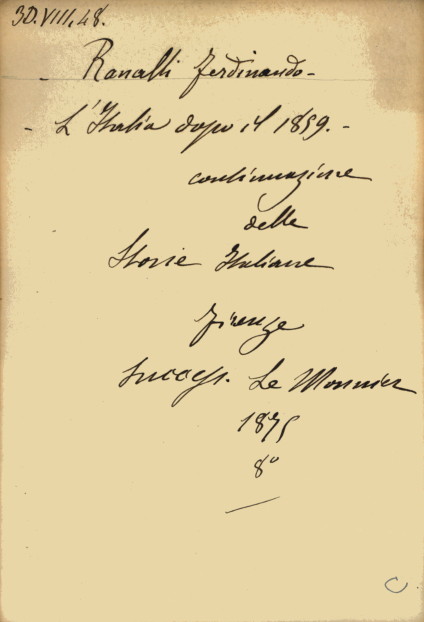 3D.VIII.48.
- Ranalli Ferdinando -
- L'Italia dopo il 1859. -
continuazione
delle
Storie Italiane
Firenze
Success. Le Monnier
1875
8º
C